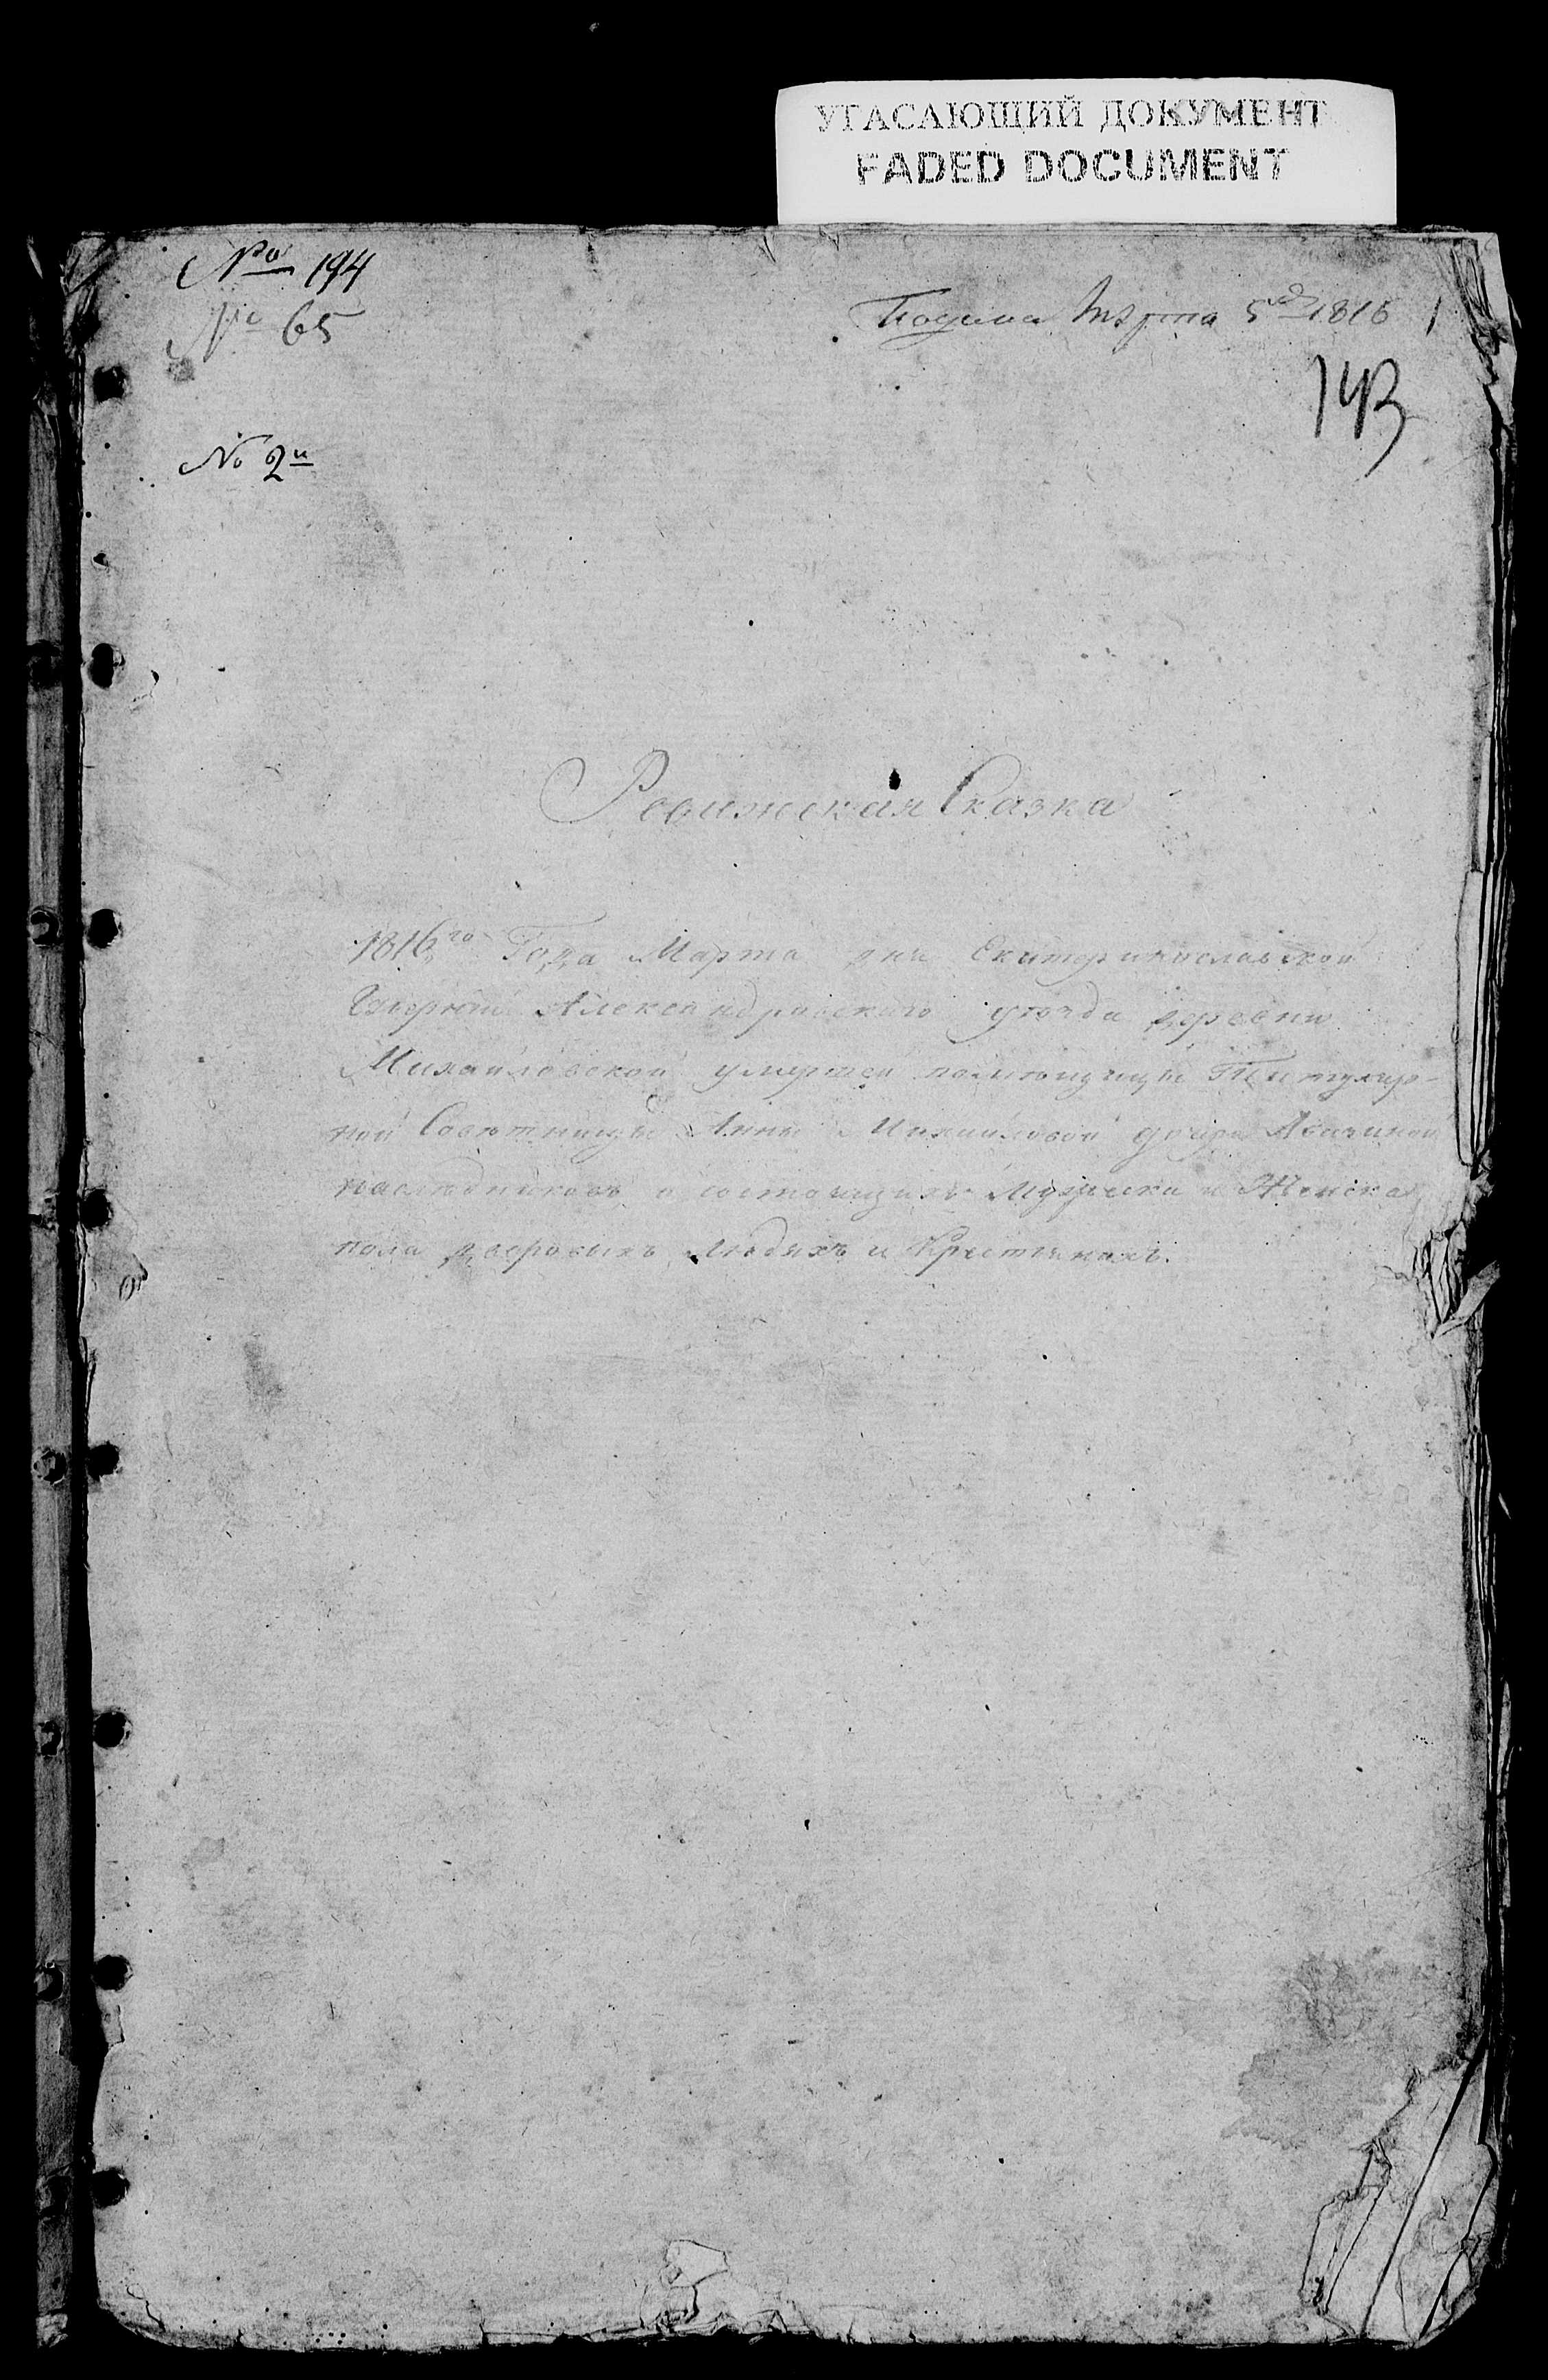 УГАСАЮЩИЙ ДОКУМЕНТ
FADED DOCUMENT
No 194
No 65
Подана Марта 5го 1816 1
143
No 2й
Ревижская Сказка
1816го Года Марта дня Екатеринославской
Губернии Александровского уезда деревни
Михайловской умершей помещицы Титуляр-
ной Советницы Анны Михайловой дочери
наследников о состоящихъ Мужеска и Женска
пола дворовыхъ людяхъ и Крестьянахъ.